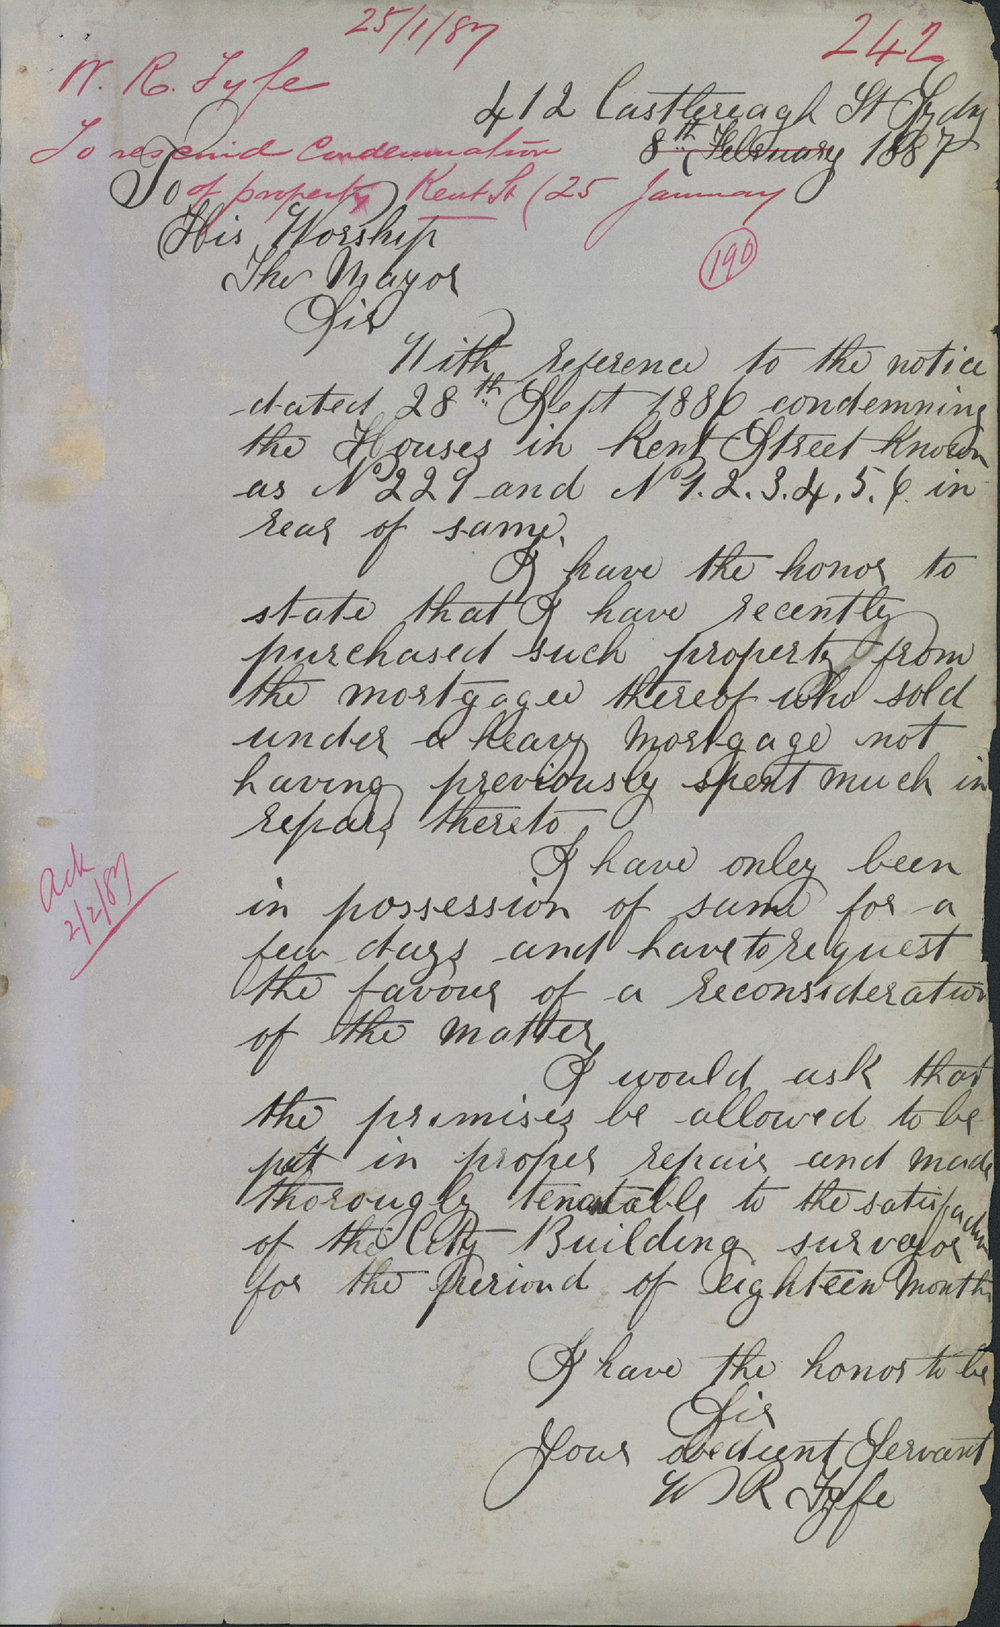 25/1/87
242
W. R. Fyfe
412 Castlereagh St Sydny
To rescind Condemnation
8th February 1887
of property Kent St (25 January
To
His Worship
190
The Mayor
Sir
With reference to the notice
dated 28th Sept 1886 condemning
the Houses in Kent Street known
as No 229 and No 1. 2. 3. 4. 5. 6. in
rear of same.
I have the honor to
state that I have recently
purchased such property from
the mortgagee thereof who sold
under a heavy mortgage not
having previously spent much in
repairs thereto
I have only been
in possession of same for a
few days and have to request
the favour of a reconsideration
of the matter
I would ask that
the premises be allowed to be
put in proper repair and made
thorougly tenatable to the satisfaction
of the City Building surveyor
for the periond of eighteen months
Ack
2/2/87
I have the honor to be
Sir
Your obedient Servant
W R Fyfe